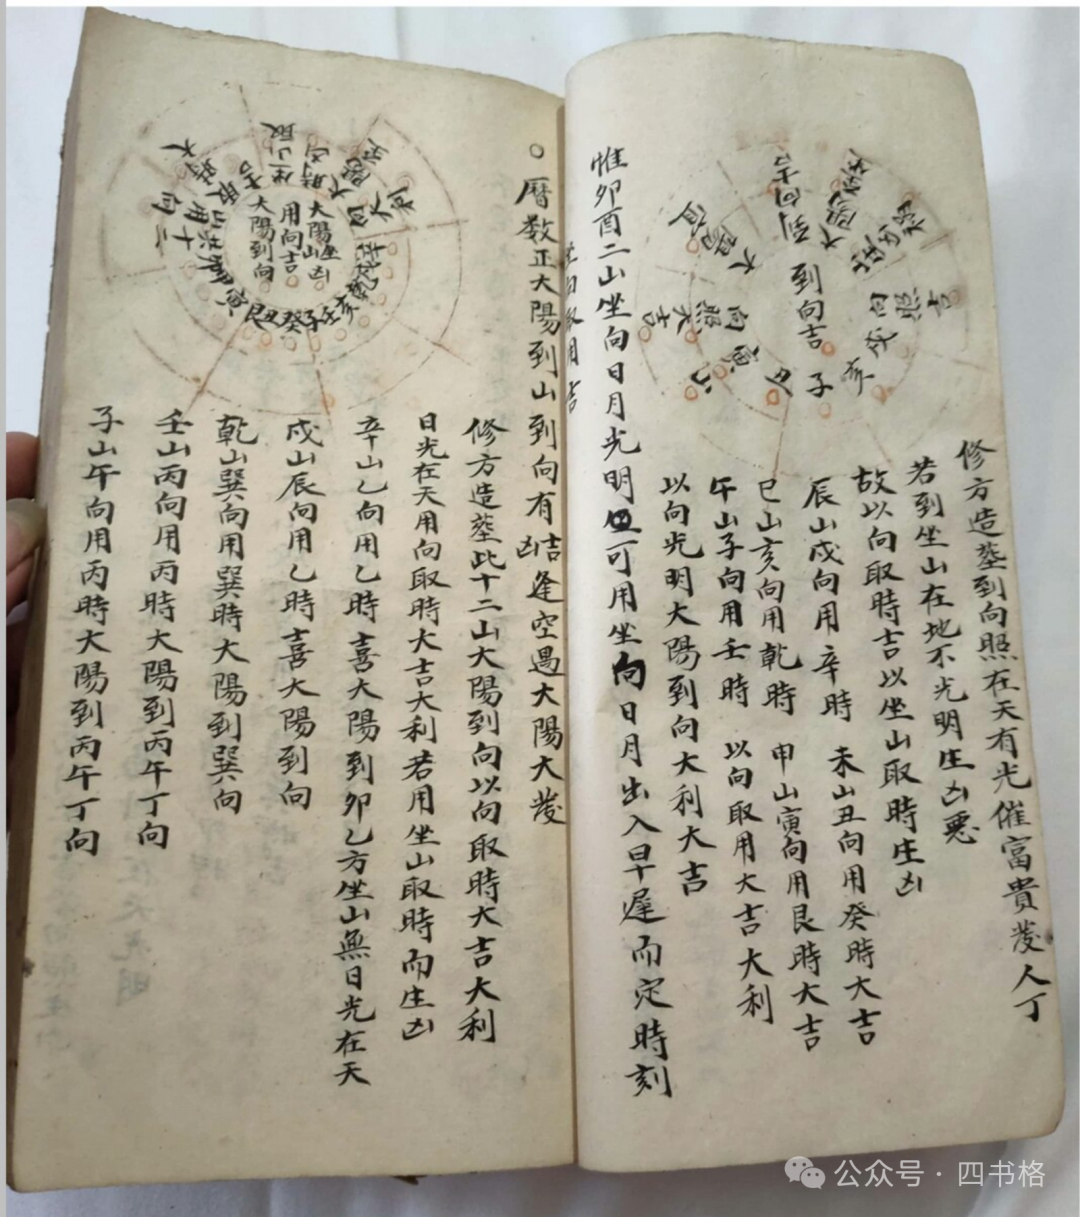 到向吉
修方造塟到向照在天有光催富貴發人丁
若到坐山在地不光明生凶惡
故以向取時吉以坐山取時生凶
辰山戌向用辛時 未山丑向用癸時大吉
巳山亥向用乾時 申山寅向用艮時大吉
午山子向用壬時 以向取用大吉大利
以向光明大陽到向大利大吉
惟卯酉二山坐向日月光明可用坐向日月出入早遲而定時刻
坐向取用吉
○曆数正大陽到山到向有吉凶逢空過大陽大發
大陽坐山凶
用向吉
大陽到向
修方造塟此十二山大陽到向以向取時大吉大利
日光在天用向取時大吉大利若用坐山取時而生凶
辛山乙向用乙時喜大陽到卯乙方坐山無日光在天
戍山辰向用乙時喜大陽到向
乾山巽向用巽時大陽到巽向
壬山丙向用丙時大陽到丙午丁向
子山午向用丙時大陽到丙午丁向
公众号·四书格